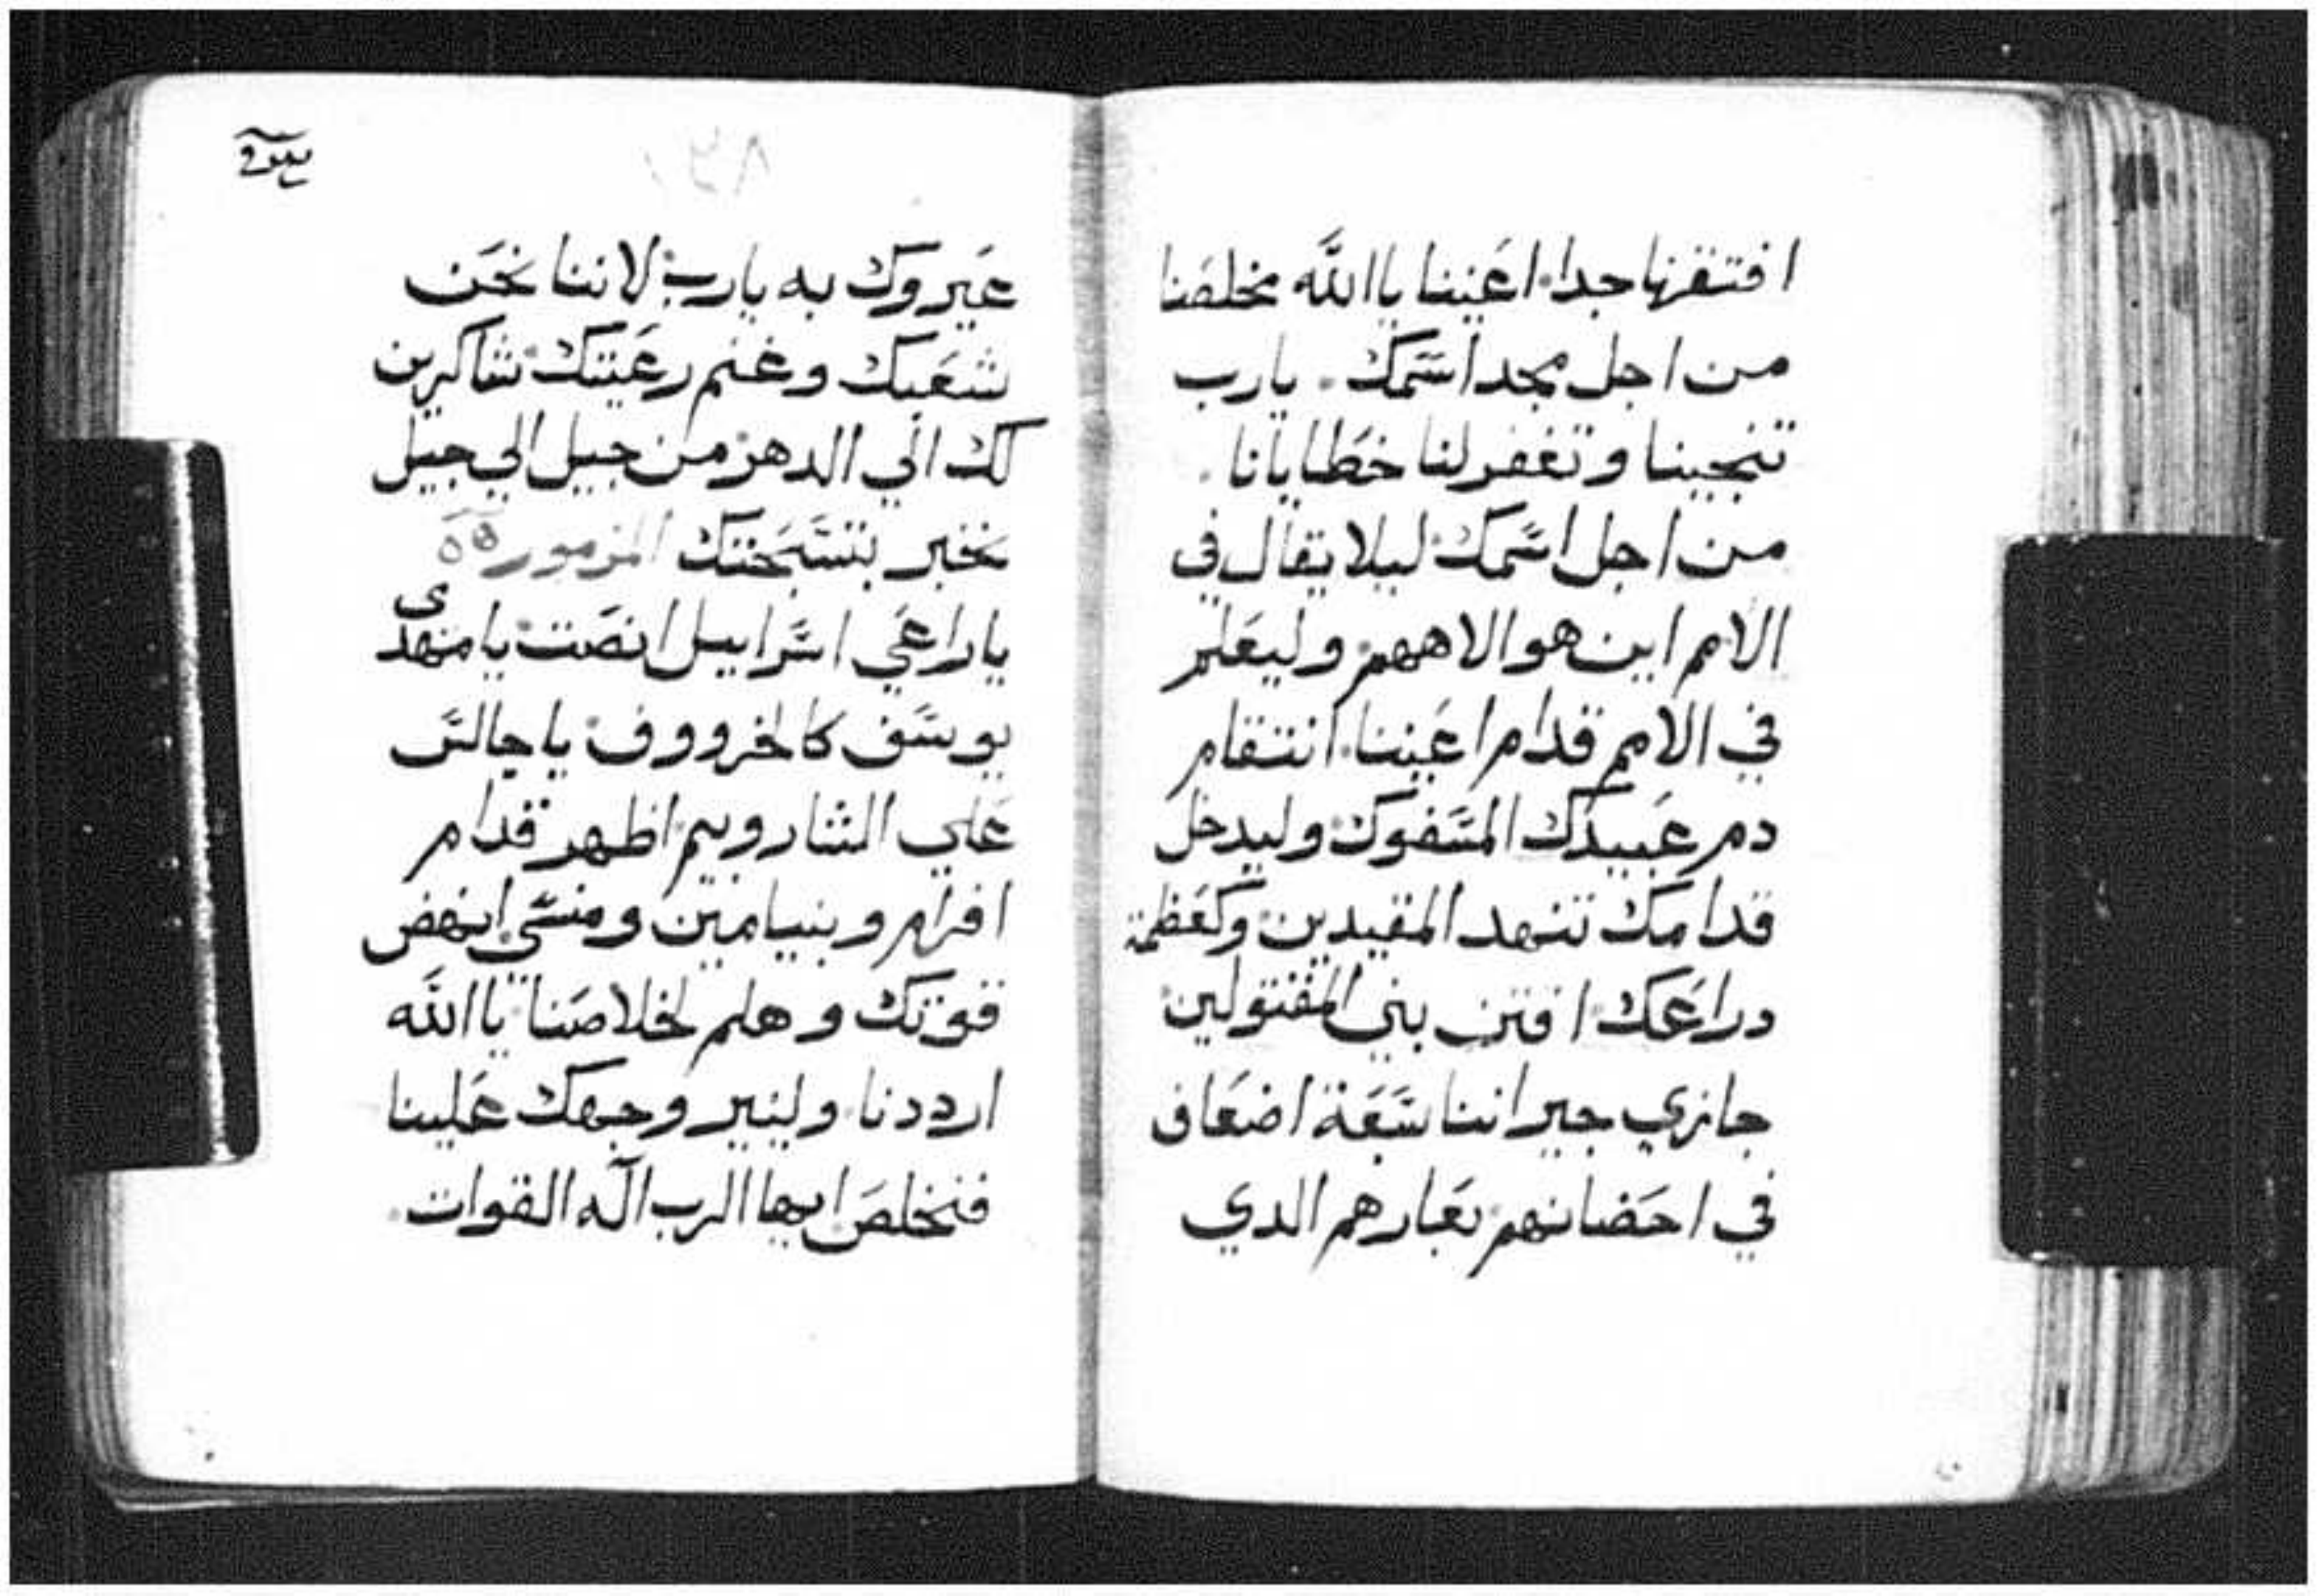 افتقرنا جدا. اعيننا ياالله مخلصنا
من اجل مجد اسمك. يارب
تنجينا وتغفر لنا خطايانا.
من اجل اسمك ليلا يقال في
الامم اين هو الاههم. وليعلم
في الامم قدام اعيننا. انتقام
دم عبيدك المسفوك وليدخل
قدامك تنهد المقيدين وكعظمة
دراعك. اقتن بني المقتولين
جازي جيراننا سبعة اضعاف
في احضانهم. بعارهم الدي
عيروك به يارب. لاننا نحن
شعبك وغنم رعيتك. شاكرين
لك الي الدهر. من جيل الي جيل
نخبر بتسبحتك المزمور
ياراعي اسراييل انصت. يا منهدى
يوسف كالخرووف. ياجالس
علي الشاروبيم. اظهر قدام
افرام وبنيامين ومنسي. انهض
قوتك وهلم لخلاصنا. ياالله
ارددنا. ولينير وجهك علينا
فنخلص. ايها الرب اله القوات.